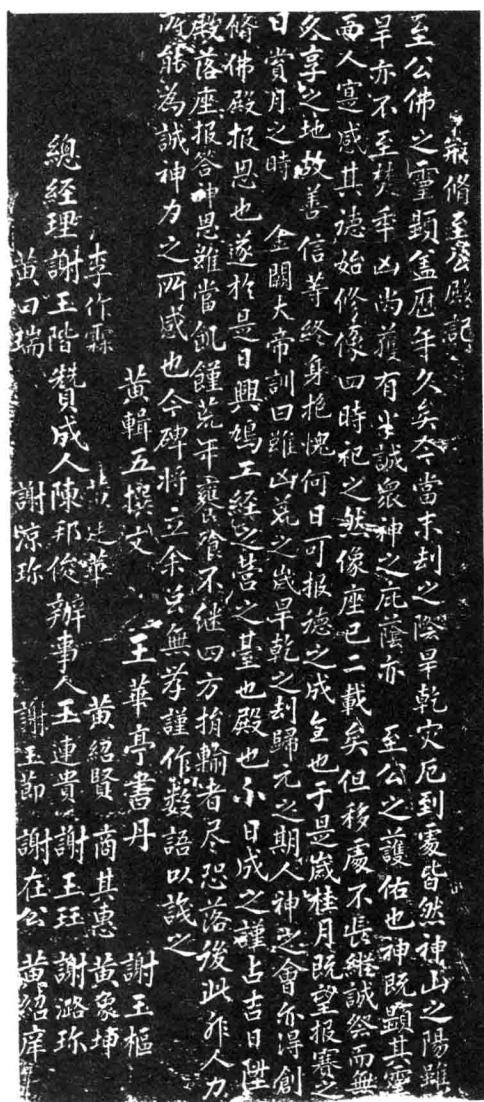 創脩至公殿記
至公佛之靈顯盖歷年久矣今當末刦之陰旱乾灾厄到處皆然神山之陽雖
旱亦不至焚年凶尚獲有半誠衆神之庇蔭亦 至公之護佑也神既顯其靈
而人寔感其德始修像四時祀之然像座已二載矣但移處不長繼誠祭而無
久享之地故善信等終身抱愧何日可报德之成全也于是歲桂月既望报赛之
日賞月之時 金闕大帝訓曰雖凶荒之歲旱乾之刦歸元之期人神之會亦得創
脩佛殿报恩也遂於是日興鳩工経之營之臺也殿也不日成之謹占吉日陞
殿落座报答神恩雖當飢饉荒年饔飱不继四方捐輸者尽恐落後此非人力
所能為誠神力之所感也今碑將立余兴無岺謹作数語以誌之
黄輯五撰文 王華亭書丹
李作霖 黄廷華 黄紹賢 商其惠 謝玉樞
總经理謝王階 贊成人陳邦俊 辦事人王連貴 謝王珏 謝潞珎 黄象坤
黄曰瑞 謝凉珎 謝玉節 謝在公 黄紹庠